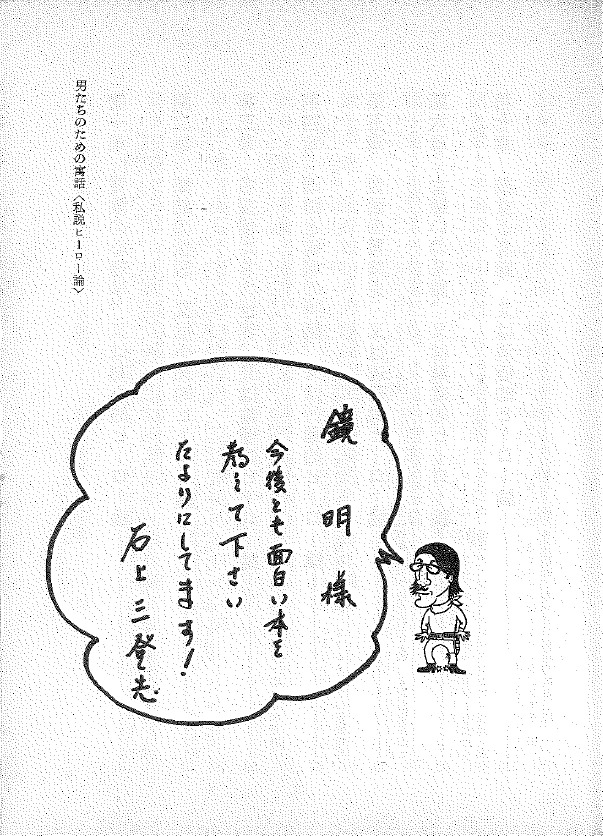 男たちのための寓話〈私説ヒーロー論〉
鏡明様
今後とも面白い本を
教えて下さい
たよりにしてます!
石上三登志